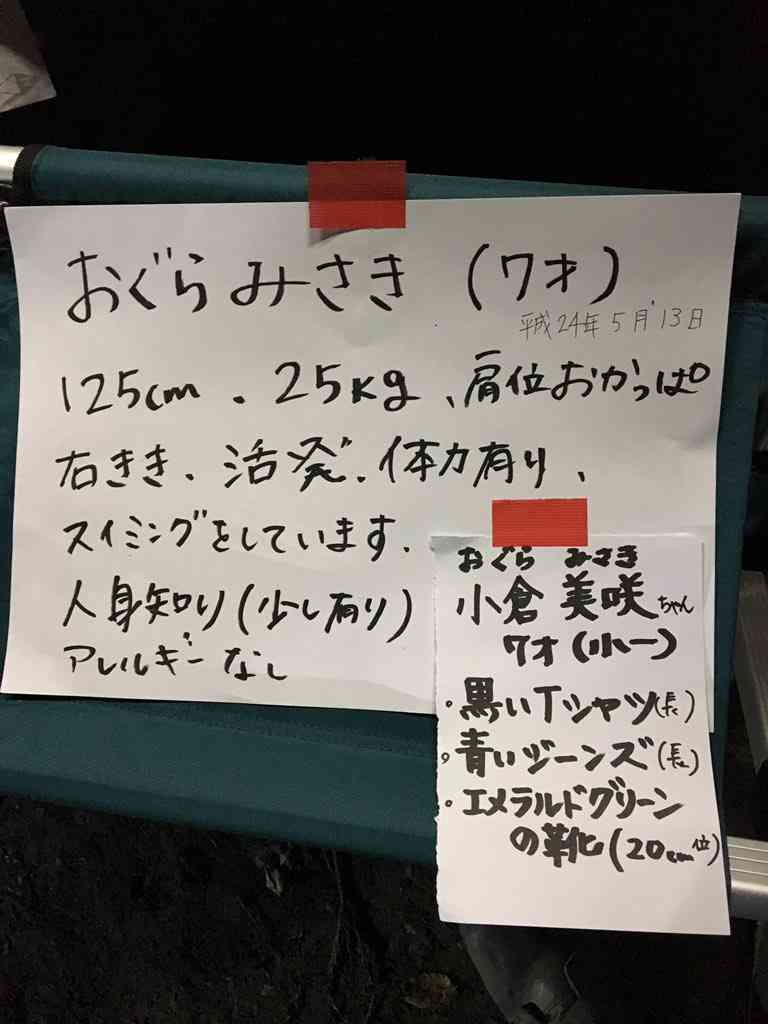 おぐら みさき (7才)
平成24年5月13日
125cm、25kg、肩位おかっぱ
右きき、活発、体力有り、
スイミングをしています、
人身知り(少し有り)
アレルギーなし
おぐら みさき
小倉 美咲ちゃん
7才(小一)
・黒いTシャツ(長)
・青いジーンズ(長)
・エメラルドグリーン
の靴(20cm位)